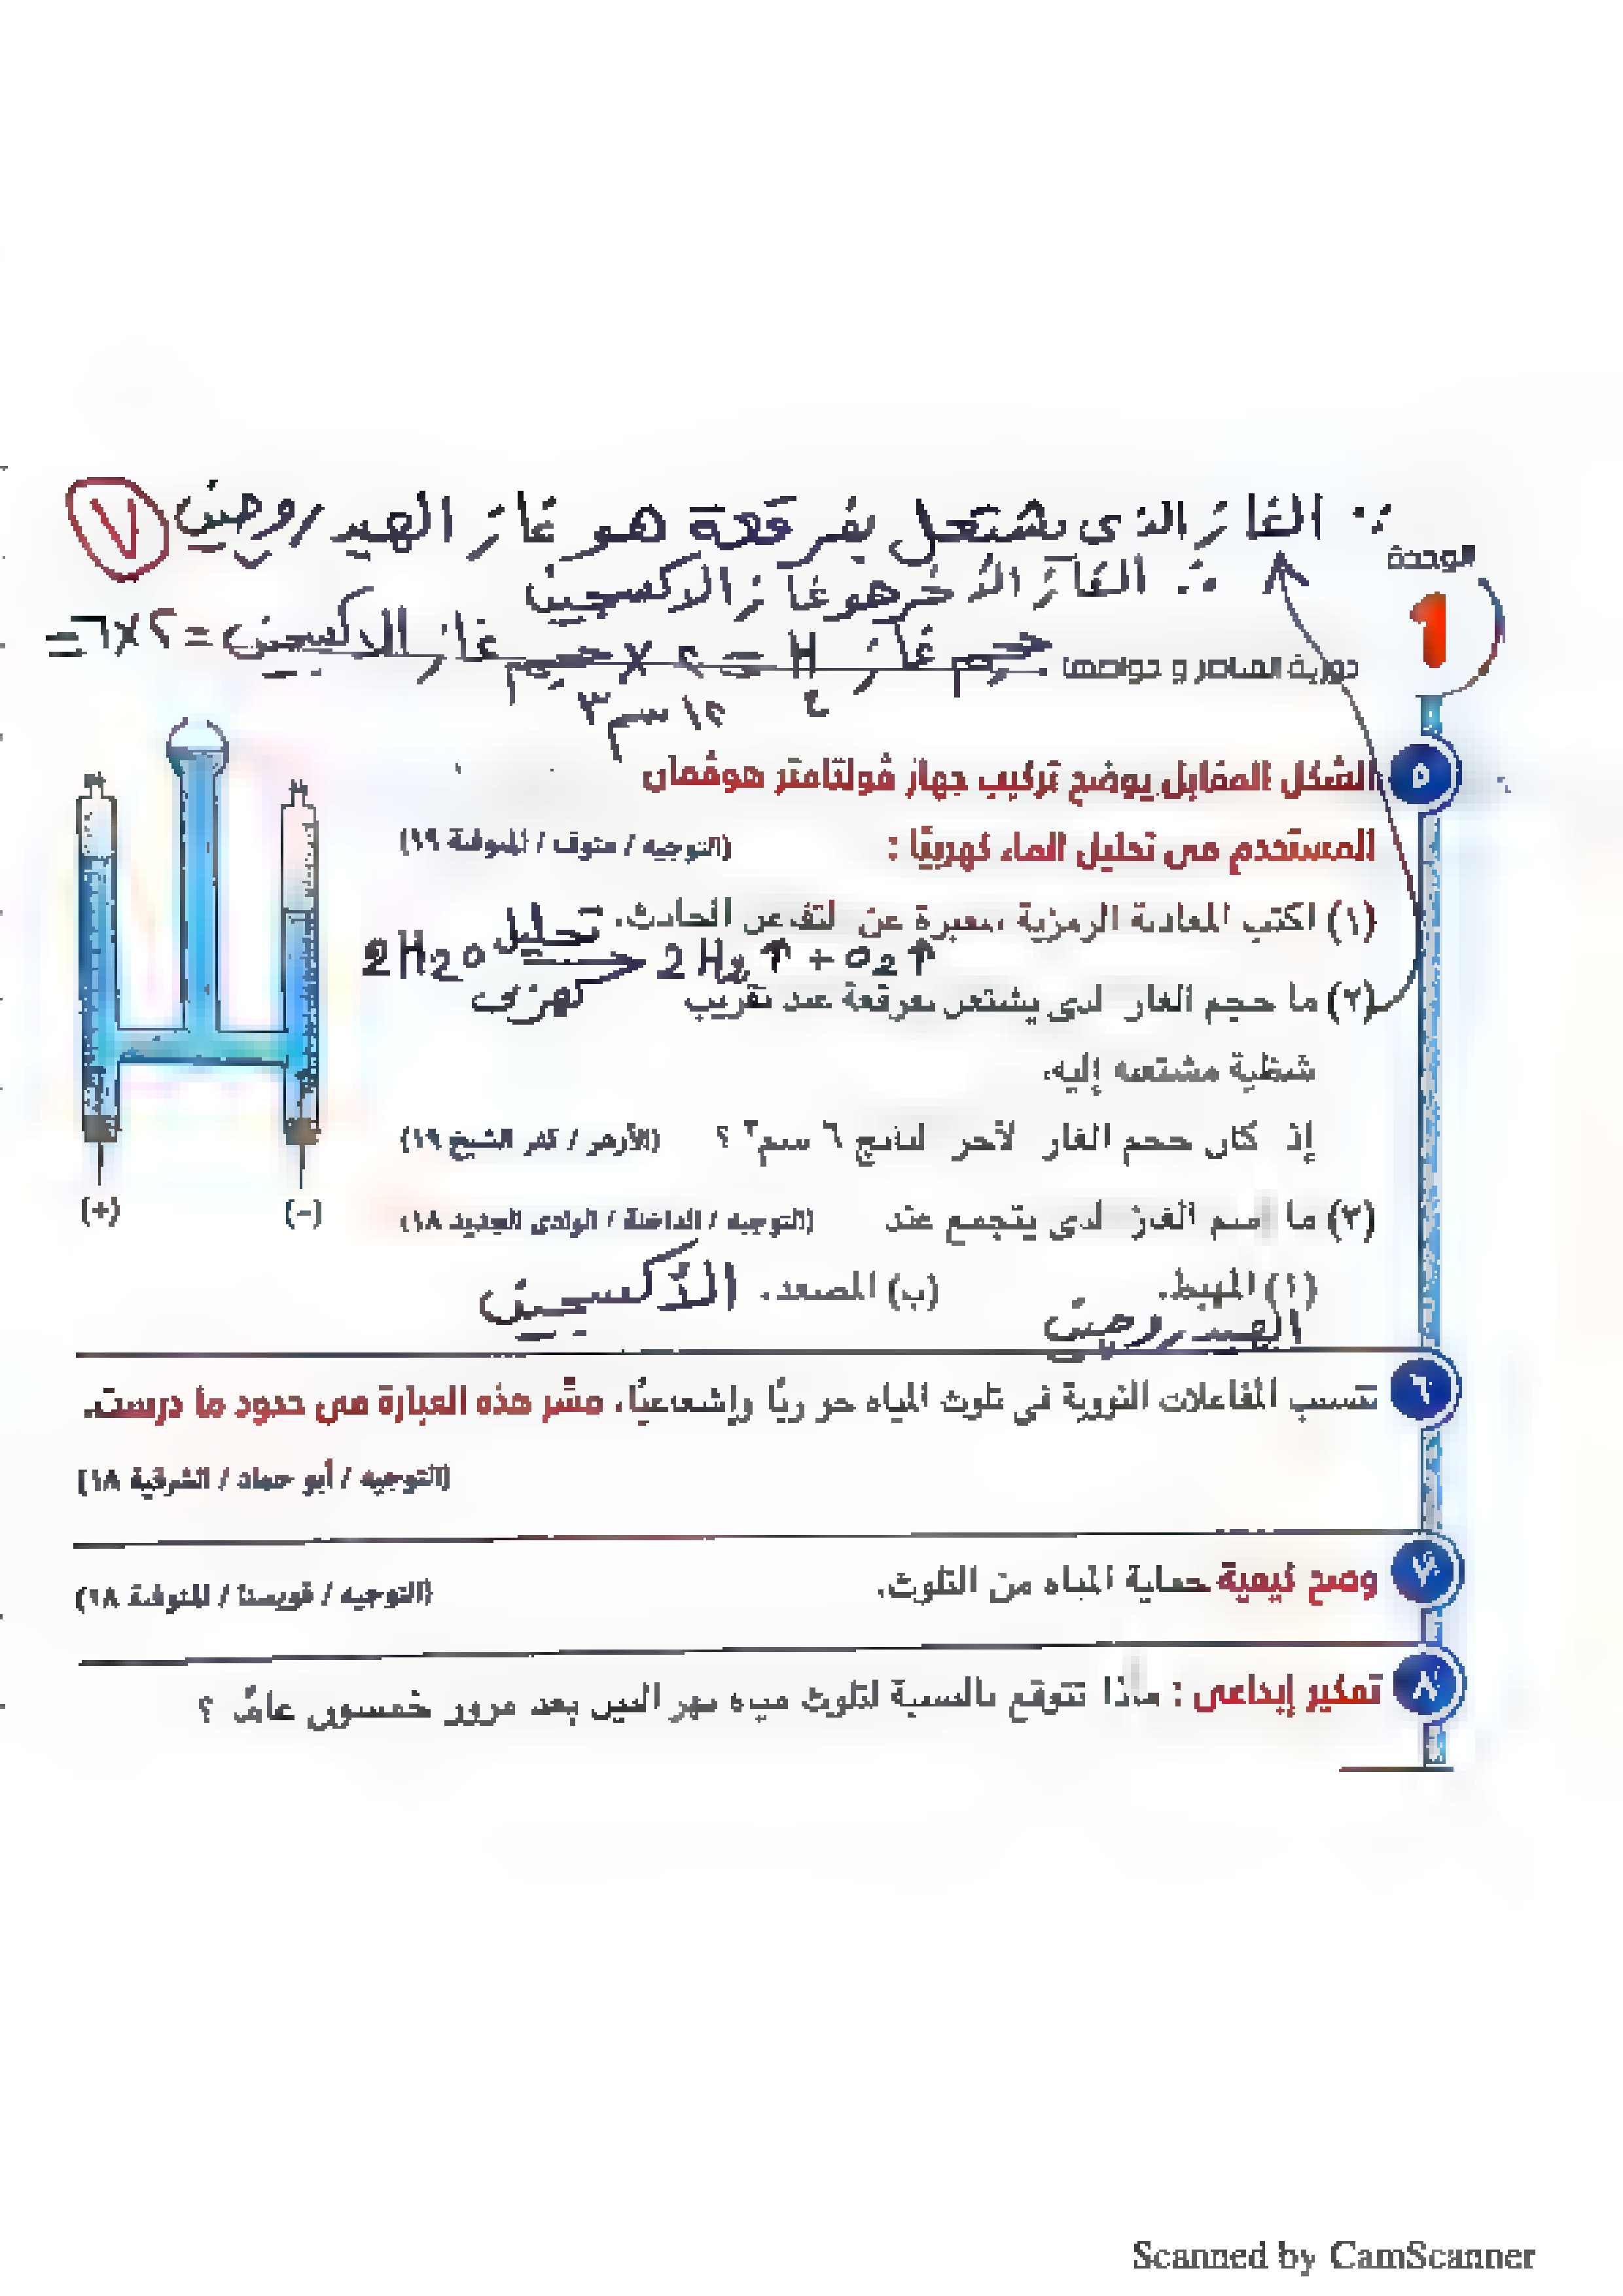 ∵ الغاز الذى يشتعل بفرقعة هو غاز الهيدروجين
٧
∴ الغاز الآخر هو غاز الاكسجين
الوحدة
1
دورية العناصر و خواصها
حجم غاز H₂ = ٢ × حجم غاز الاكسجين = ٢×٦ =
١٢ سم٣
٥ الشكل المقابل يوضح تركيب جهاز فولتامتر هوفمان
المستخدم فى تحليل الماء كهربيًا : (التوجيه / منوف / المنوفية ١٩)
(١) اكتب المعادلة الرمزية المعبرة عن التفاعل الحادث.
2H2O تحليل كهربى → 2H2↑ + O2↑
(٢) ما حجم الغاز الذى يشتعل بفرقعة عند تقريب
شظية مشتعلة إليه،
إذا كان حجم الغاز الآخر الناتج ٦ سم٣ ؟ (الأزهر / كفر الشيخ ١٩)
(+) (-)
(٣) ما اسم الغاز الذى يتجمع عند (التوجيه / الداخلة / الوادى الجديد ١٨)
(١) المهبط. (ب) المصعد. الأكسجين
الهيدروجين
٦ تتسبب المفاعلات النووية فى تلوث المياه حراريًا وإشعاعيًا، فسّر هذه العبارة فى حدود ما درست.
(التوجيه / أبو حماد / الشرقية ١٨)
٧ وضح كيفية حماية المياه من التلوث. (التوجيه / قويسنا / المنوفية ١٨)
٨ تفكير إبداعى : ماذا تتوقع بالنسبة لتلوث مياه نهر النيل بعد مرور خمسون عامًا ؟
Scanned by CamScanner